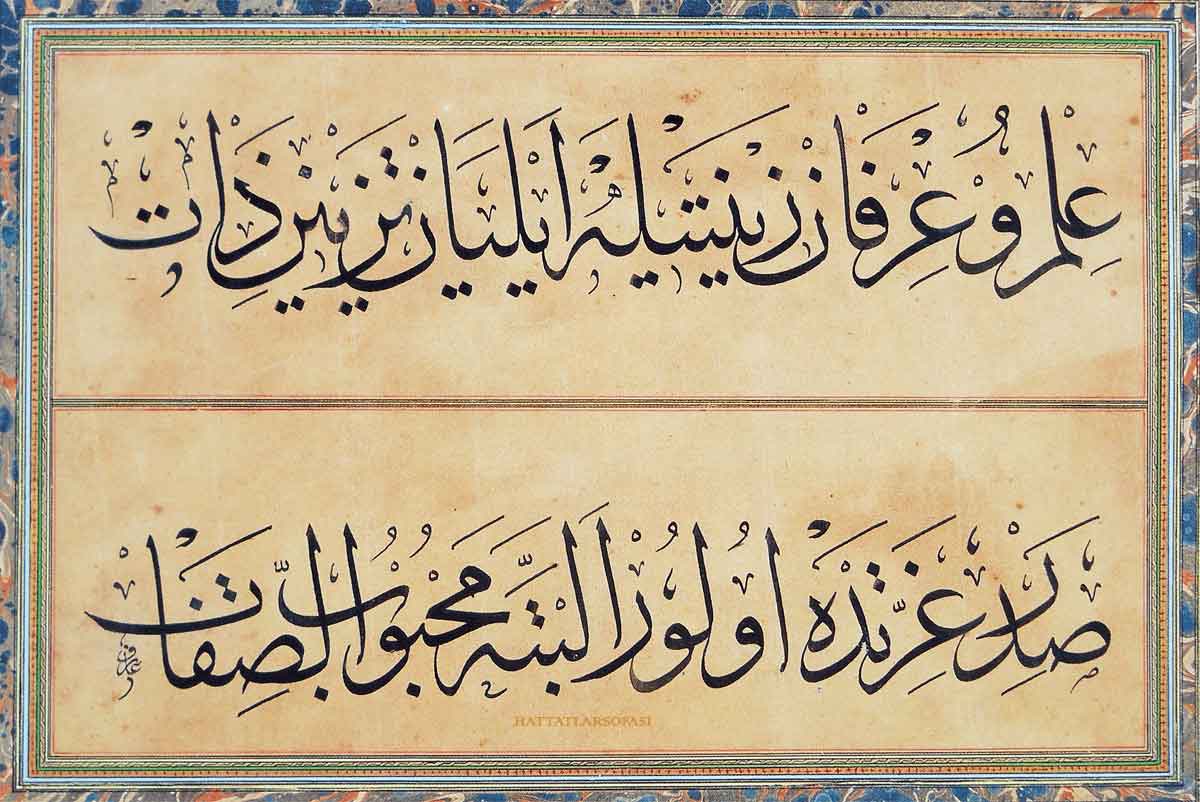 عِلْم وُ عِرْفَان زِينَتِيلَه اَيْلَيَان تَزْيِينِ ذَات
صَدْرِ عِزَّتْدَه اُولُور اَلْبَتَّه مَحْبُوبُ الصِّفَات
عارف
HATTATLARSOFASI